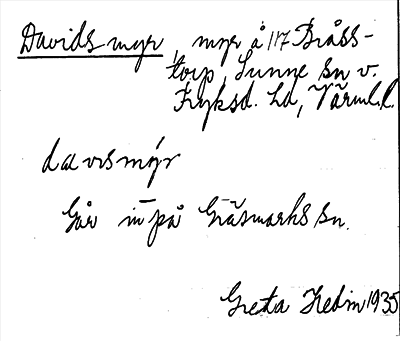 Davids myr, myr å 117 Bråss-
torp, Sunne sn v.
Fryksd. hd, Värml. l.
davsmýr
Går in på Gräsmarks sn.
Greta Hedin 1935